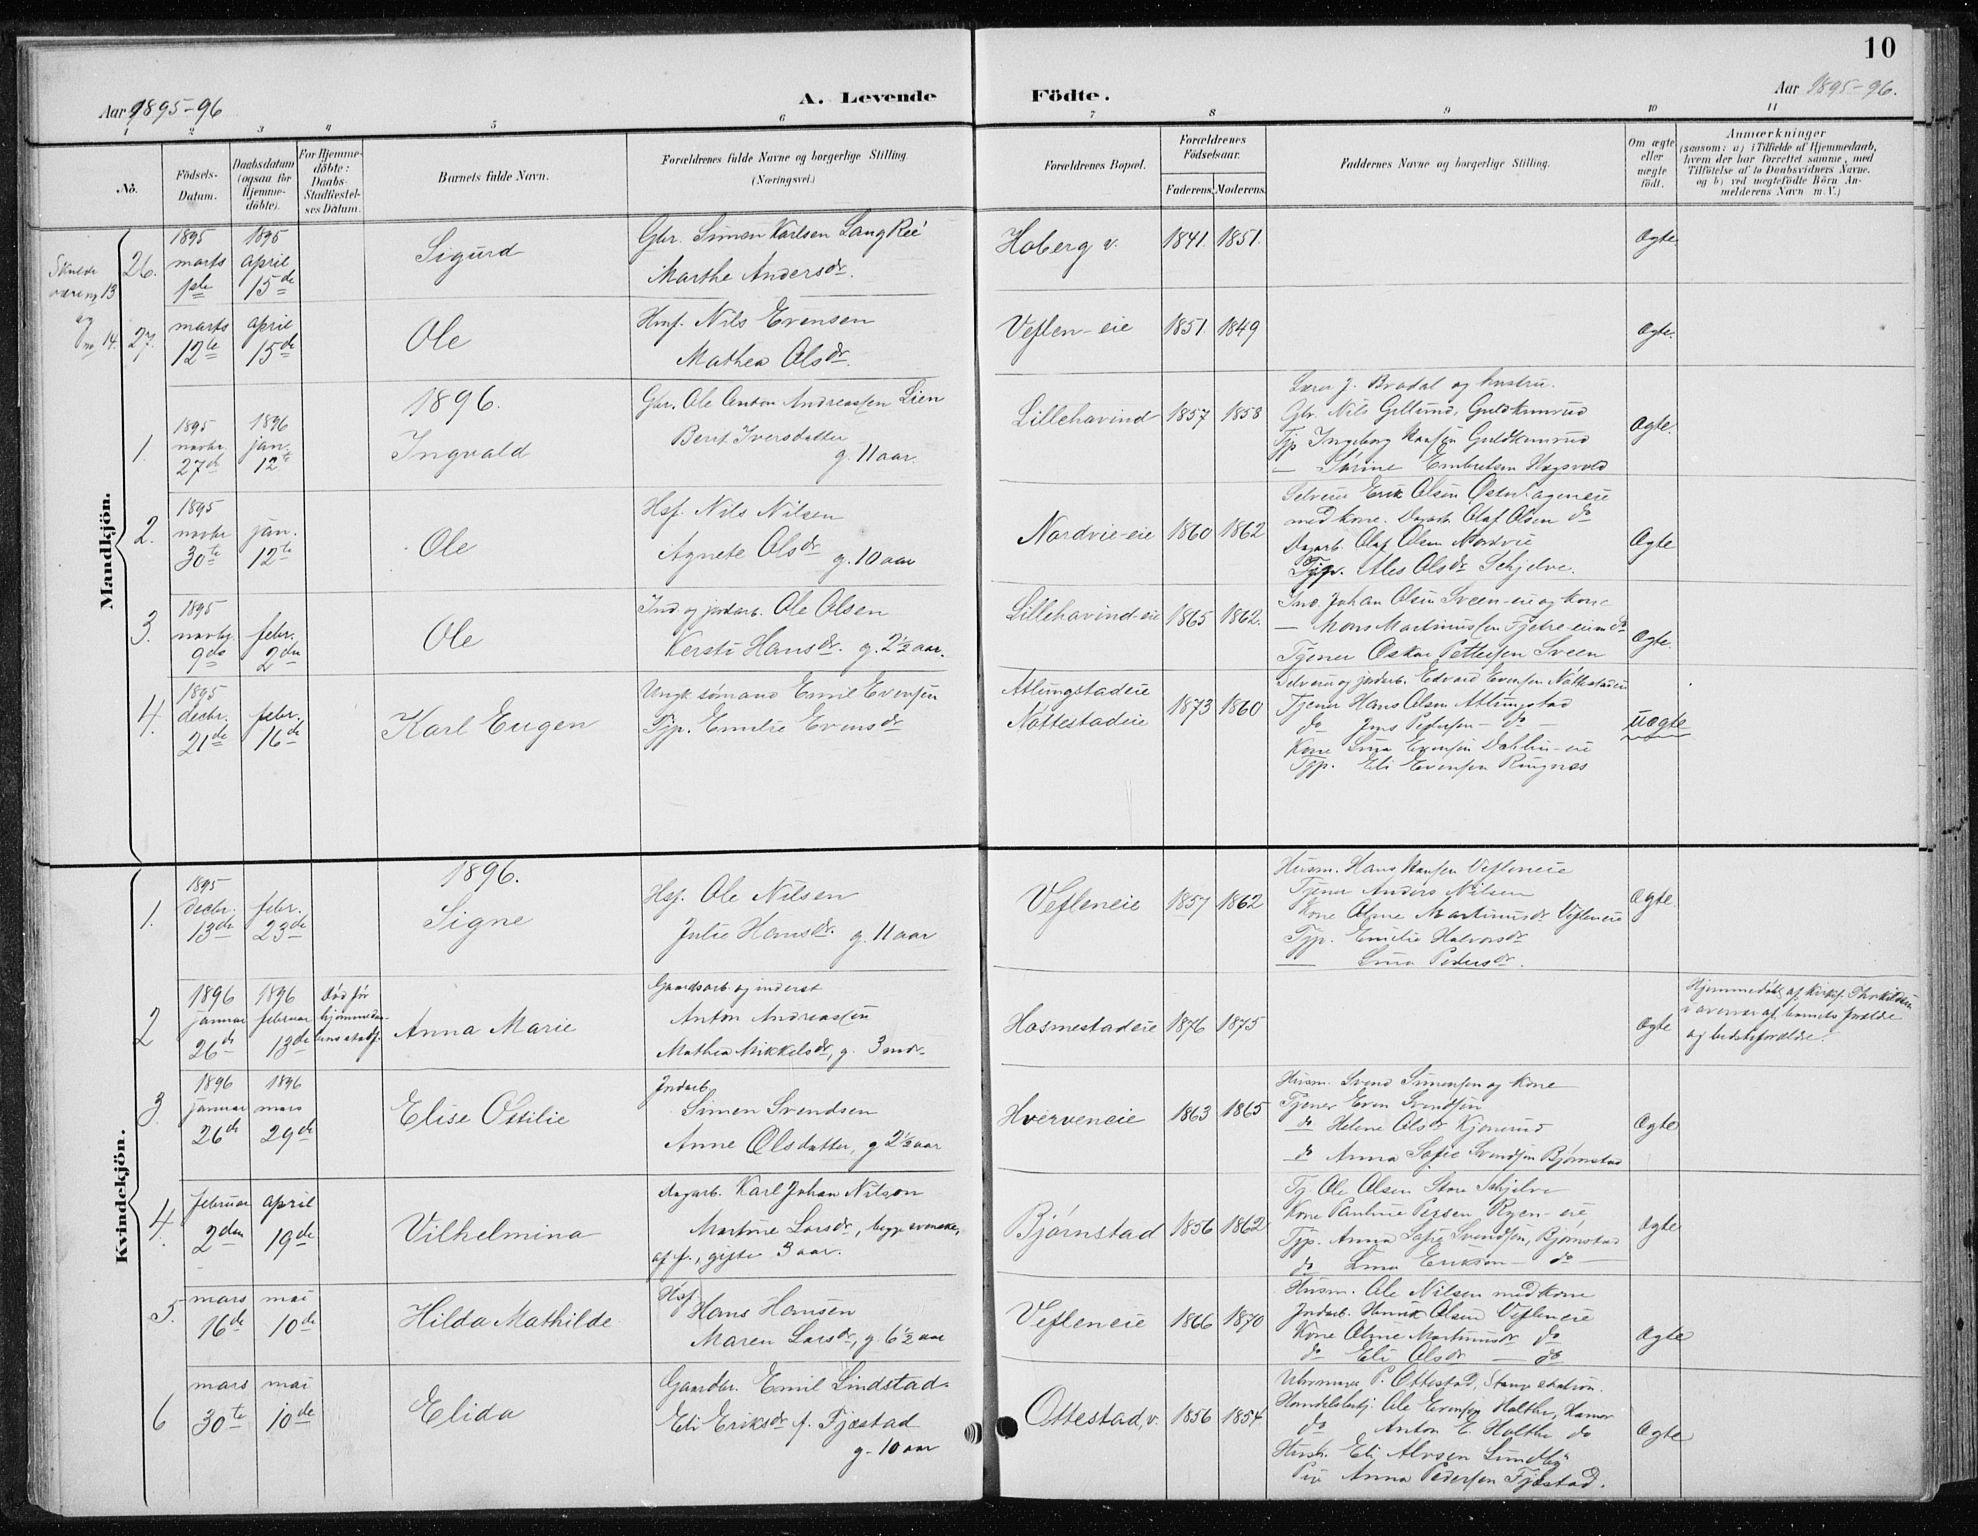 10
Aar 1895-96
A. Levende Födte.
Aar 1895-96.
1 2 3 4 5 6 7 8 9 10 11
No.
Födsels-Datum.
Daabsdatum (ogsaa for Hjemme-döbte).
For Hjemme-döbte: Daabs-Stadfæstel-ses Datum.
Barnets fulde Navn.
Forældrenes fulde Navne og borgerlige Stilling. (Næringsvei.)
Forældrenes Bopæl.
Forældrenes Födselsaar.
Faderens. Moderens.
Faddernes Navne og borgerlige Stilling.
Om ægte eller uægte födt.
Anmærkninger
(saasom: a) i Tilfælde af Hjemmedaab, hvem der har forrettet samme, med Tilföielse af to Daabsvidners Navne, og b) ved uægtefödte Börn An-melderens Navn m. V.)
Mandkjön.
Skulde være no 13 og no 14.
26. 1895 marts 1ste
1895 april 15de
Sigurd
Gbr. Simen Karlsen Lang Reé
Marthe Andersdr.
Hoberg v. 1841. 1851. Ægte
27. marts 12te
april 15de
Ole
Hmf. Nils Evensen
Mathea Olsdr.
Veflen-eie 1851. 1849 Ægte.
1896.
1. 1895 novbr. 27de
1896 jan. 12te
Ingvald
Gbr. Ole Anton Andreassen Lien
Berit Iversdatter
g. 11 aar
Lillehavind 1857 1858
Lærer J. Brodal og hustru.
Gbr. Nils Gillund, Guldkunrud
Tjp Ingeborg Hansen Guldkunrud
— Sørine Embretsen Hagsvold
Ægte.
2. 1895 novbr 30te
jan. 12te
Ole
Hsf. Nils Nilsen
Agnete Olsdr g. 10 aar
Nordvie-eie 1860 1862
Selveier Erik Olsen
med kone. Dagarb. Olaf Olsen do
Dagarb. Olaf Olsen Nordvie
Tjp. Ales Olsdr Schjelve.
Ægte
3. 1895 novbr. 9de
febr. 2den
Ole
Ind og jordarb. Ole Olsen
Kersti Hansdr. g. 2½ aar.
Lillehavind-eie 1865 1862.
Ind. Johan Olsen Sveen-eie og kone
— Mons Martinussen Fjetre-eie m do
Tjener Oskar Pettersen Sveen
Ægte.
4. 1895 decbr. 21de
febr. 16de
Karl Eugen
Ungk. sømand Emil Evensen
Tjp. Emilie Evensdr
Atlungstadeie
Nøttestadeie
1873 1860
Selveier og jordarb. Edvard Evensen Nøttestadeie
Tjener Hans Olsen Atlungstad
do Jens Pedersen — do —
Kone Lina Evensen Dahlin-eie
Tjp. Eli Evensen Ringnes
uægte
Kvindekjön.
1896.
1. 1895 decbr. 13de
febr. 23de
Signe
Hsf. Ole Nilsen
Julie Hansdr. g. 11 aar
Vefleneie 1857 1862
Husm. Hans Hansen Vefleneie
Tjener Anders Nilsen
Kone Oline Martinusdr Vefleneie
Tjp. Emilie Halvorsdr
— Lina Pedersdr.
Ægte
2 1896 januar 26de
1896 februar 13de
Død før hjemmedaabens stadf.
Anna Marie
Gaardsarb. og inderst
Anton Andreassen
Mathea Mikkelsdr, g. 3 mdr
Hosmestadeie 1876 1875
Ægte
Hjemmedøbt af kirkes. Thorkildsen
i overvær af barnets forældre
og bedsteforældre.
3 1896 januar 26de
1896 mars 29de
Elise Ottilie
Jndarb.
Simen Svendsen
Anne Olsdatter, g 2½ aar
Hverveneie 1863 1865
Husm. Svend Simensen og kone
Tjener Even Svendsen
do Helene Olsdr Kjonerud
do Anna Sofie Svendsen Bjørnstad
Ægte
4. februar 2den
april 19de
Vilhelmina
Dagarb. Karl Johan Nilson
Martine Larsdr, begge svenske,
af f., gifte 3 aar.
Bjørnstad 1856 1862
Tj. Ole Olsen Store Schjelve
Kone Pauline Persen Ryen-eie
Tjp. Anna Sofie Svendsen, Bjørnstad
do Lina Erikson — do —
Ægte
5. mars 16de
mai 10de
Hilda Mathilde
Hsf.
Hans Hansen
Maren Larsdr, g. 6½ aar
Vefleneie 1866 1870
Husm. Ole Nilsen med kone
Jndarb. Henrik Olsen Vefleneie
Kone Oline Martinusdr do
do Eli Olsdr — do
Ægte
6 mars 30te
mai 10de
Elida
Gaardbr. Emil Lindstad
Eli Eriksdr f. Fjæstad
g. 10 aar
Ottestad, v. 1856 1854
Uhrmager P. Ottestad, Stange station.
Handelsbetj. Ole Evensen Holthe, Hamar
do Anton E. Holthe do
Husb. Eli Alvsen Lundby
Pie Anna Pedersen Fjæstad.
Ægte